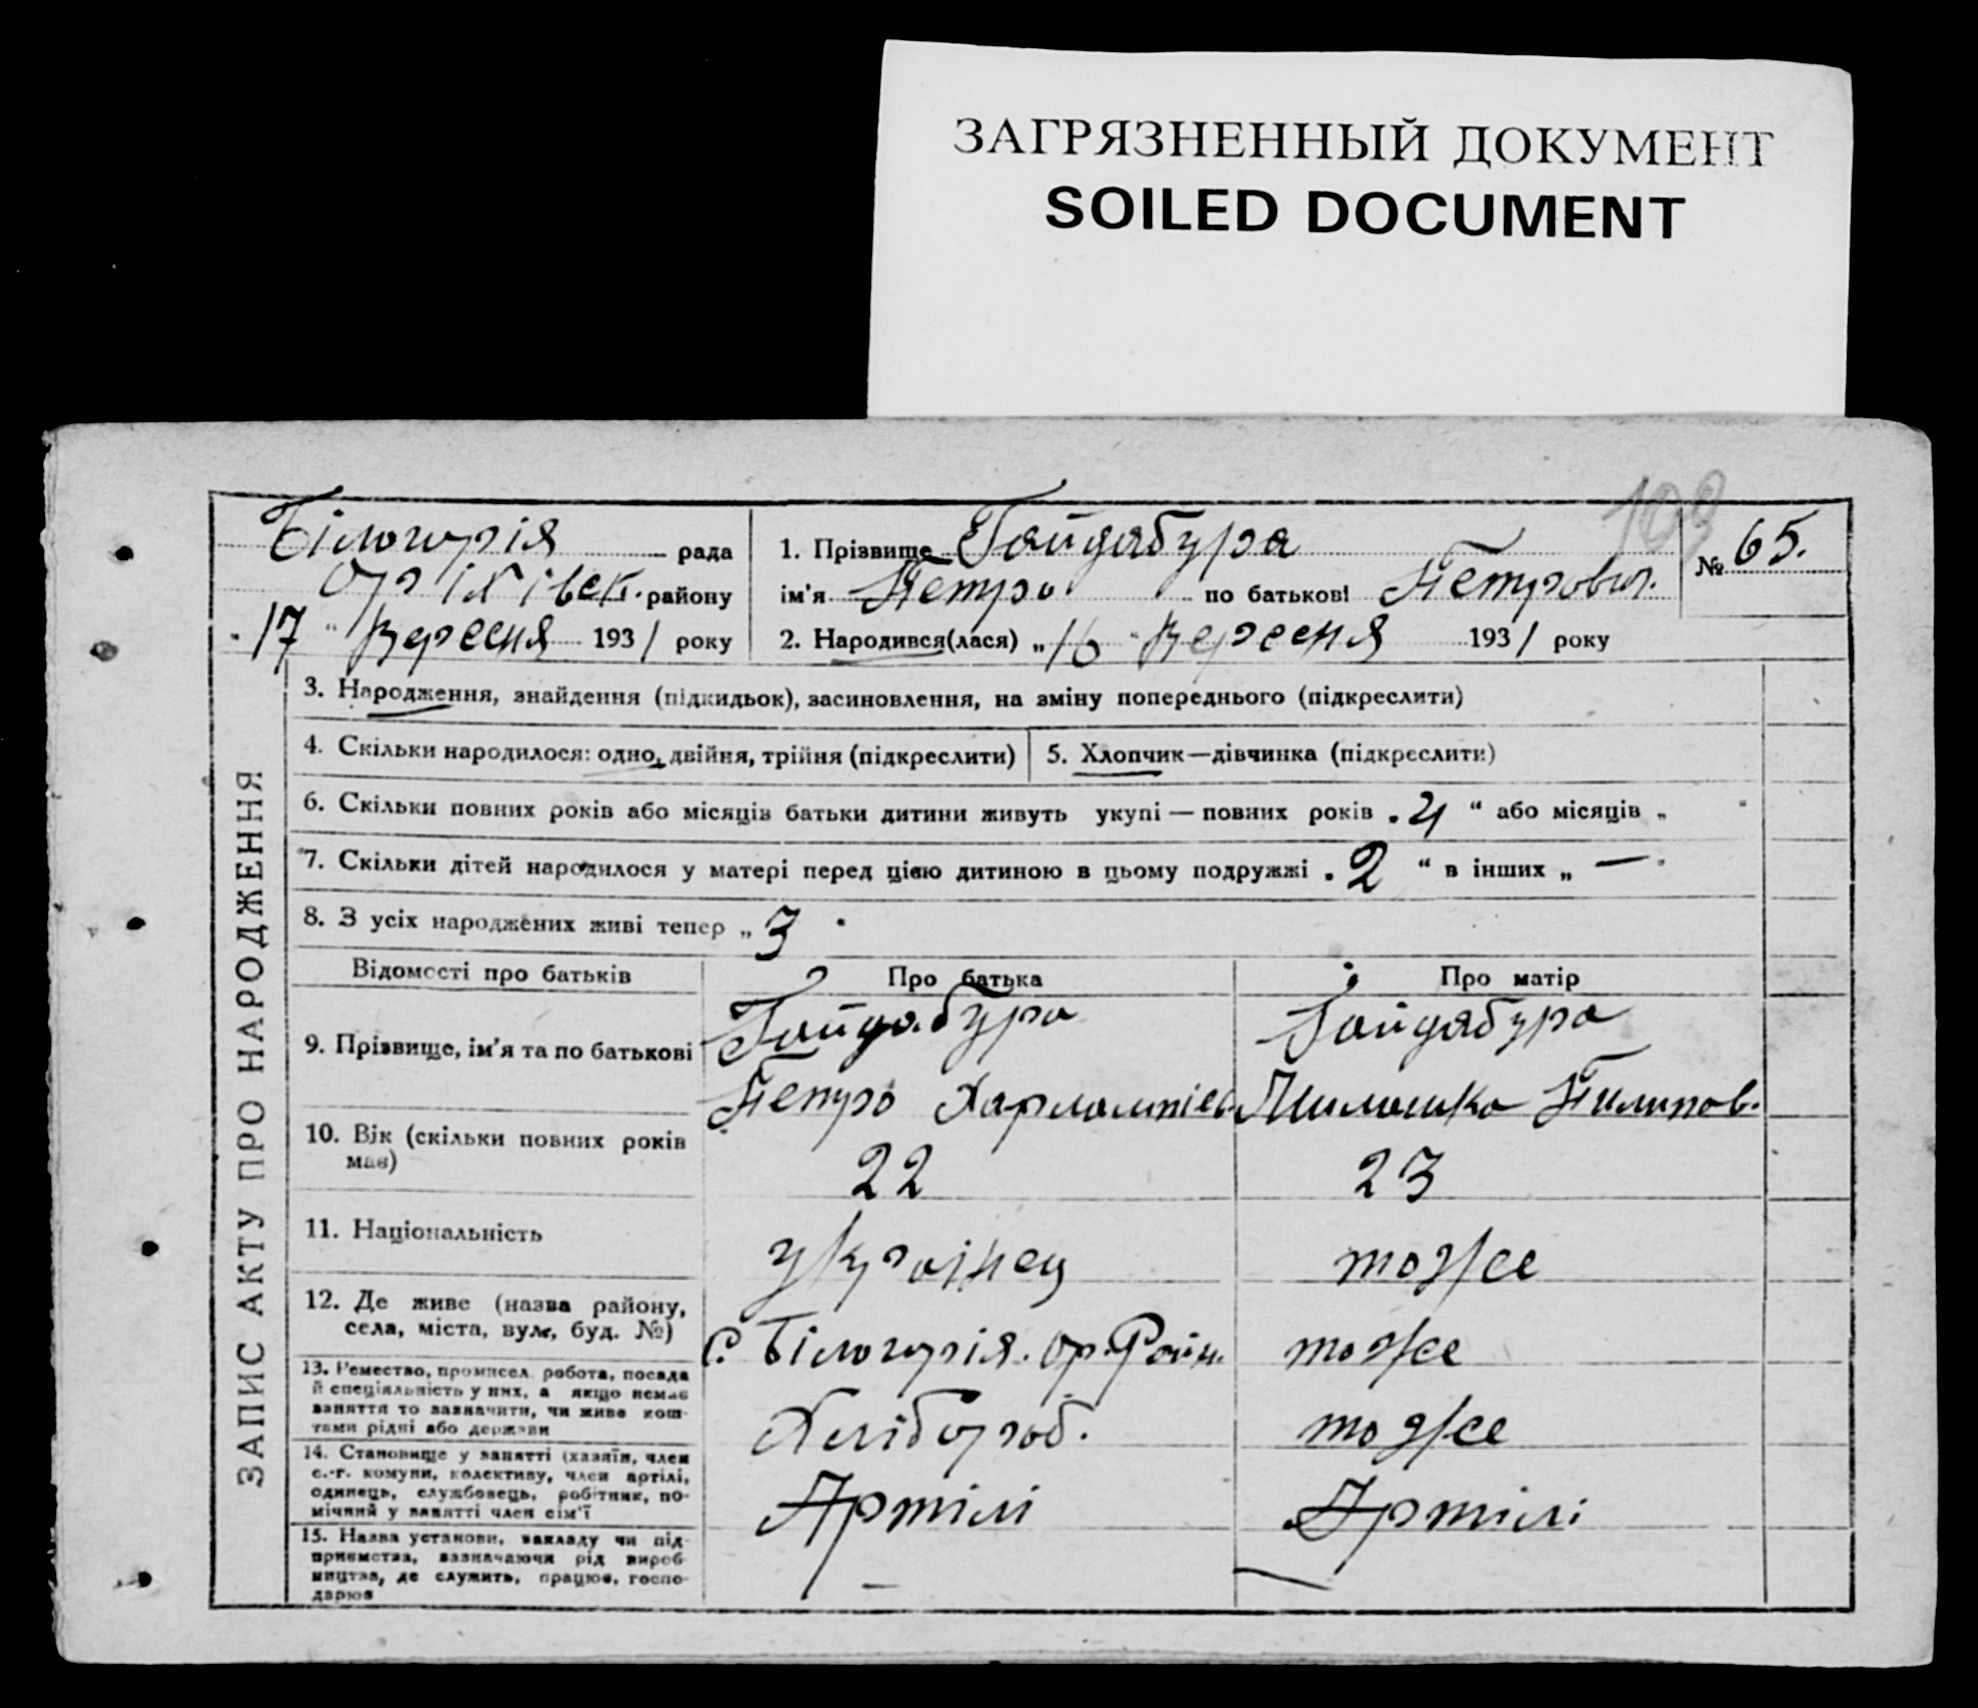 ЗАГРЯЗНЕННЫЙ ДОКУМЕНТ
SOILED DOCUMENT
103
Білогирія рада
Оріхівск. району
„17" Вересня 1931 року
1. Прізвище Гайдабура
ім'я Петро по батькові Петрович.
№ 65.
2. Народився(лася) „16" Вересня 1931 року
ЗАПИС АКТУ ПРО НАРОДЖЕННЯ
3. Народження, знайдення (підкидьок), засиновлення, на зміну попереднього (підкреслити)
4. Скільки народилося: одно, двійня, трійня (підкреслити)
5. Хлопчик—дівчинка (підкреслити)
6. Скільки повних років або місяців батьки дитини живуть укупі — повних років „4" або місяців „ "
7. Скільки дітей народилося у матері перед цією дитиною в цьому подружжі „2" в інших „—"
8. З усіх народжених живі тепер „3"
Відомості про батьків Про батька Про матір
9. Прізвище, ім'я та по батькові Гайдабура Гайдабура
Петро Харлампієв. Пилипов.
10. Вік (скільки повних років 22 23
має)
11. Національність українец тоже
12. Де живе (назва району,
села, міста, вул., буд. №) С. Білогирія. Ор. Район. тоже
13. Ремество, промисел, робота, посада
й спеціяльність у них, а якщо немає
заняття то зазначити, чи живе кош-
тами рідні або держави Хлібороб. тоже
14. Становище у занятті (хазяїн, член
с.-г. комуни, колективу, член артілі,
одинець, службовець, робітник, по-
мічний у занятті член сім'ї Артілі Артілі
15. Назва установи, закладу чи під-
приємства, зазначаючи рід вироб-
ництва, де служить, працює, госпо-
дарює — —